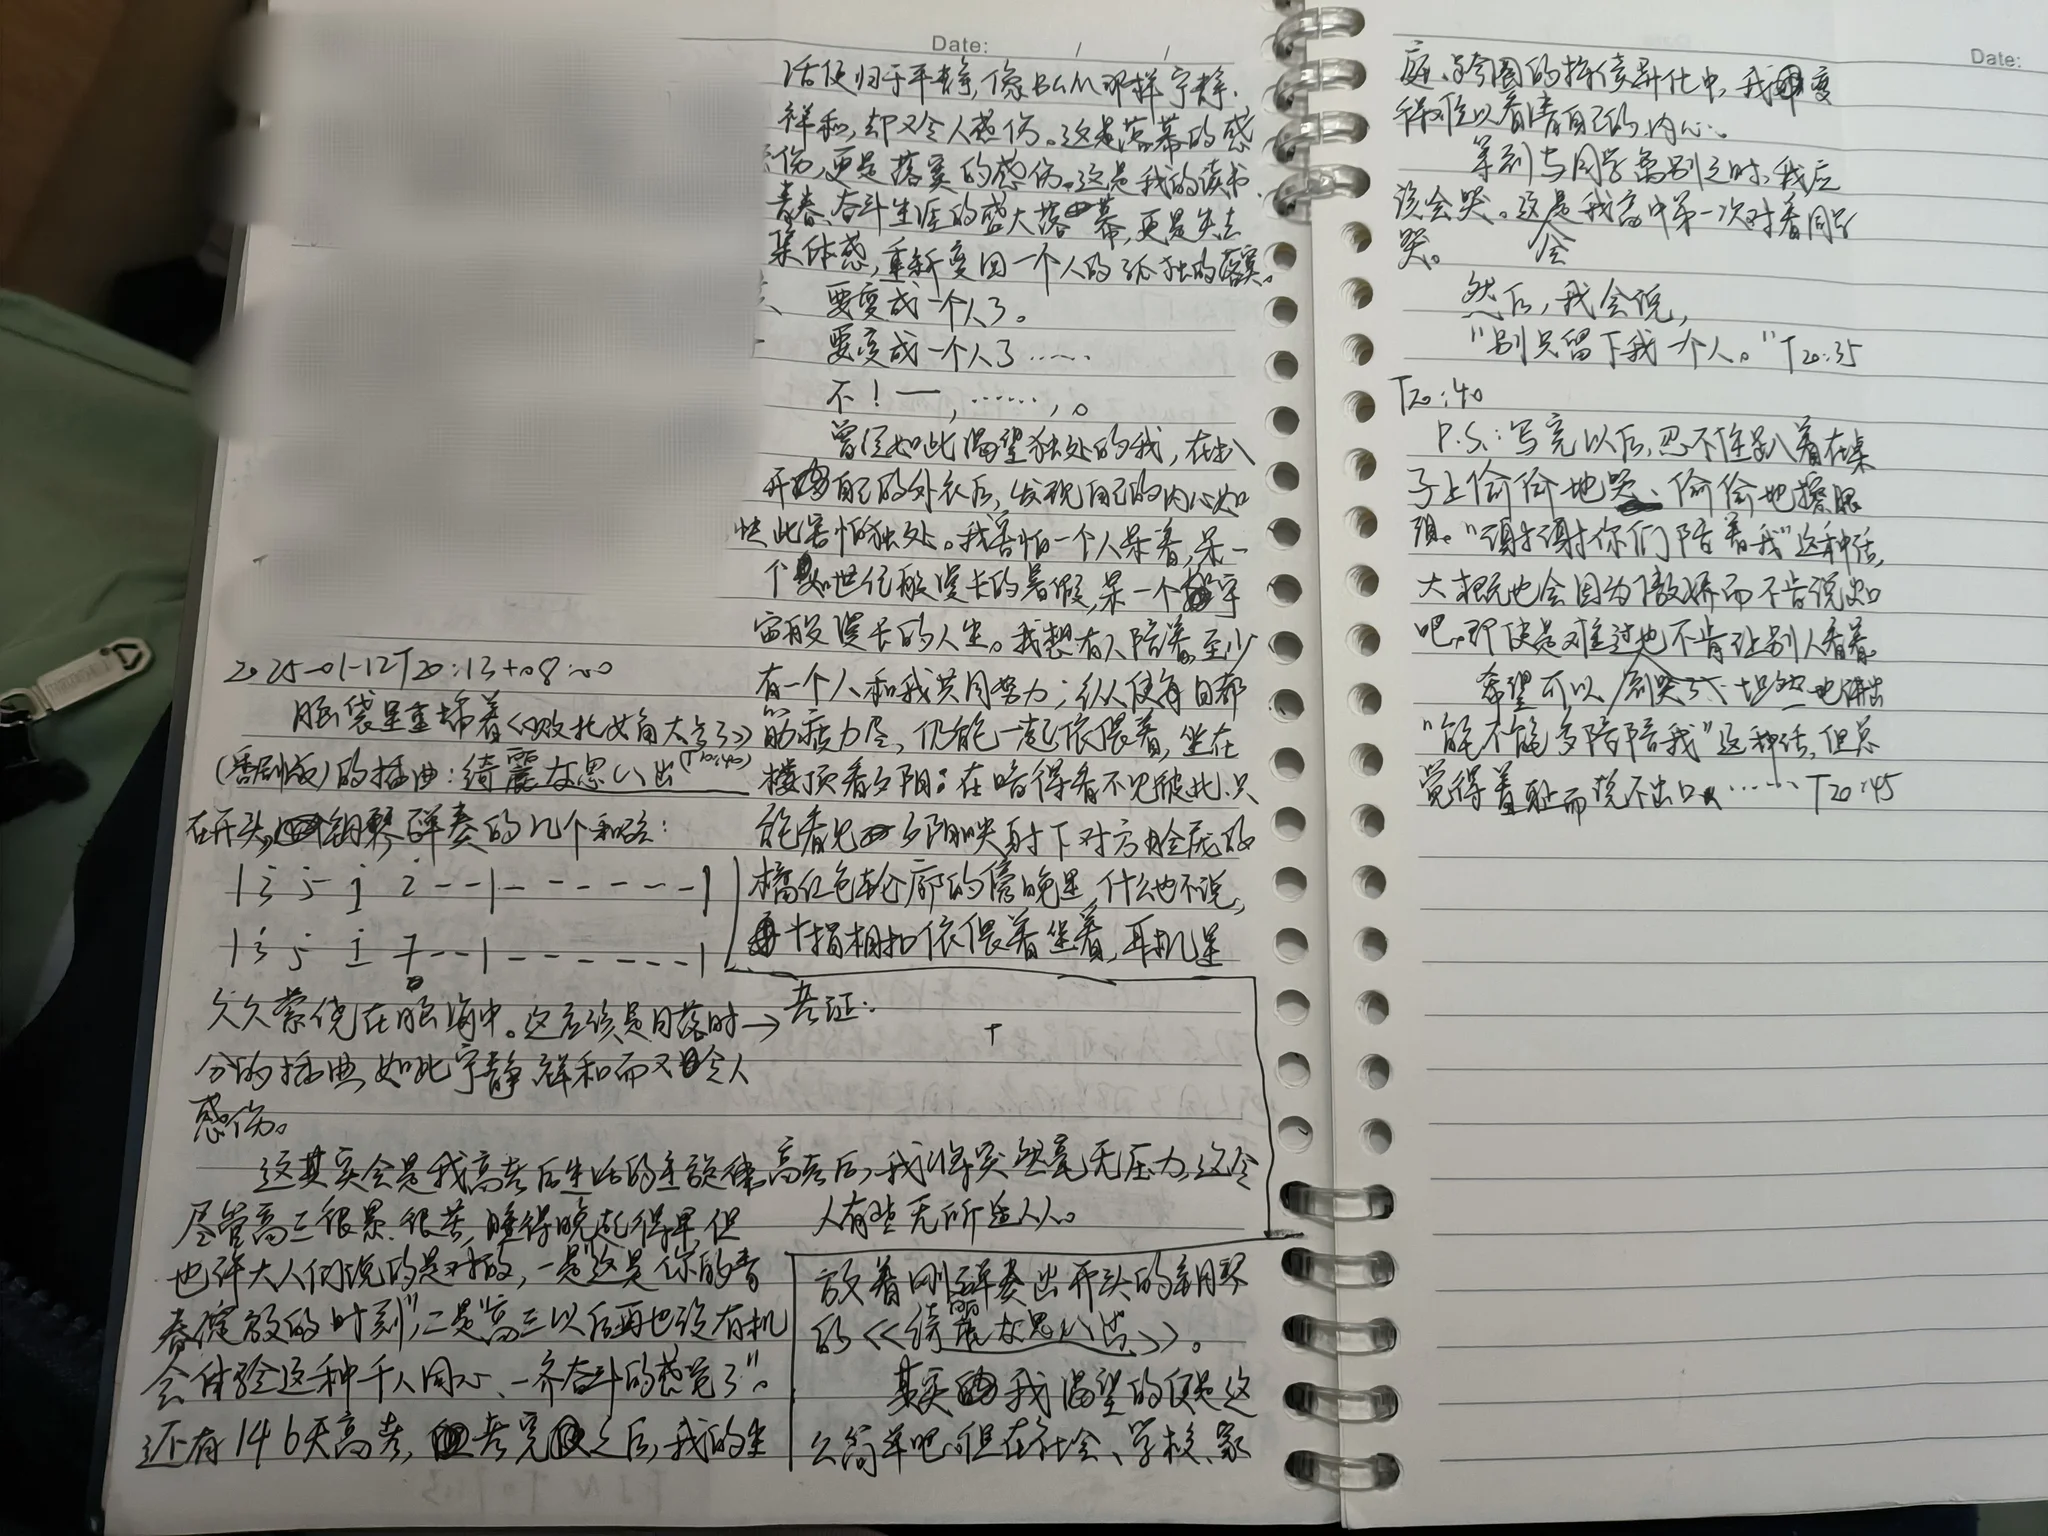 2025-01-12T20:13+08:00
脑袋里重播着《败北女角太多了》
(番剧版)的插曲:綺麗な思い出(T20:40)
在开头,钢琴弹奏的几个和弦:
久久萦绕在脑海中。这应该是日落时
分的插曲,如此宁静祥和而又令人
感伤。
这其实会是我高考后生活的主旋律。
尽管高三很累、很苦,睡得晚起得早,但
也许大人们说的是对的,一是"这是你的青
春绽放的时刻",二是"高三以后再也没有机
会体验这种千人同心、一齐奋斗的感觉了"。
还有146天高考,考完之后,我的生
Date: / /
活便归于平静,像BGM那样宁静、
祥和,却又令人感伤。这是落幕的感
伤,更是落寞的感伤。这是我的读书、
青春、奋斗生涯的盛大落幕,更是失去
集体感,重新变回一个人的孤独的落寞。
要变成一个人了。
要变成一个人了……
不!—,……,。
曾经如此渴望独处的我,在扒
开自己的外衣后,发现自己的内心如
此害怕独处。我害怕一个人呆着,呆一
个如世纪般漫长的暑假,呆一个宇
宙般漫长的人生。我想有人陪着,至少
有一个人和我共同努力;纵使每日都
筋疲力尽,仍能一起依偎着,坐在
楼顶看夕阳;在暗得看不见彼此、只
能看见夕阳映射下对方脸庞的
橘红色轮廓的傍晚里,什么也不说,
十指相扣依偎着坐着,耳机里
→ 旁证:
高考后,我将突然毫无压力,这令
人有些无所适从。
放着刚弹奏出开头的钢琴
的《綺麗な思い出》。
其实我渴望的便是这
么简单吧。但在社会、学校、家
Date:
庭、跨圈的持续异化中,我变
得难以看清自己的内心。
等到与同学离别之时,我应
该会哭。这会是我高中第一次对着同学
哭。
然后,我会说,
"别只留下我一个人。"T20:35
T20:40
P.S.:写完以后,忍不住趴着在桌
子上偷偷地哭、偷偷地擦眼
泪。"谢谢你们陪着我"这种话,
大概也会因为傲娇而不肯说出
吧,即使是难过也不肯让别人看着。
希望可以坦然地讲出
"能不能多陪陪我"这种话,但总
觉得羞耻而说不出口……T20:45